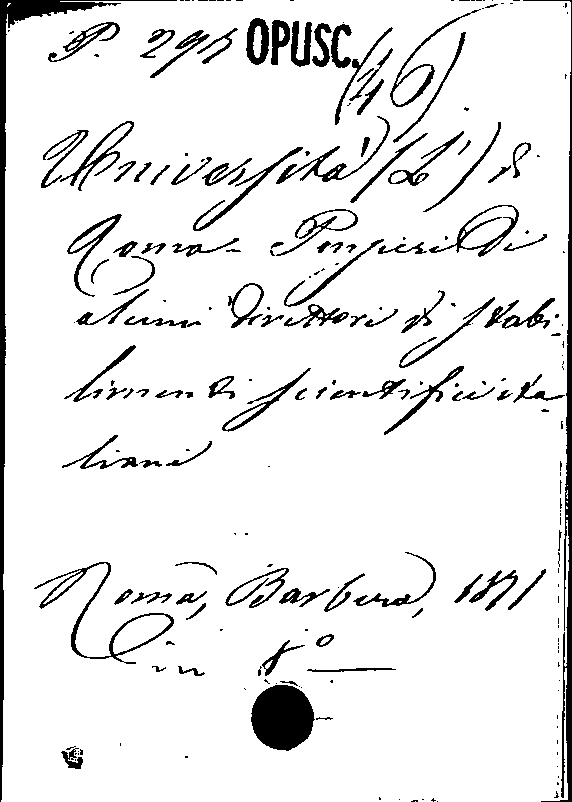 P. 295 OPUSC. (46)
Università (L') di
Roma - Pensieri di
alcuni direttori di stabi-
limenti scientifici ita-
liani
Roma, Barbera, 1871
in 8°